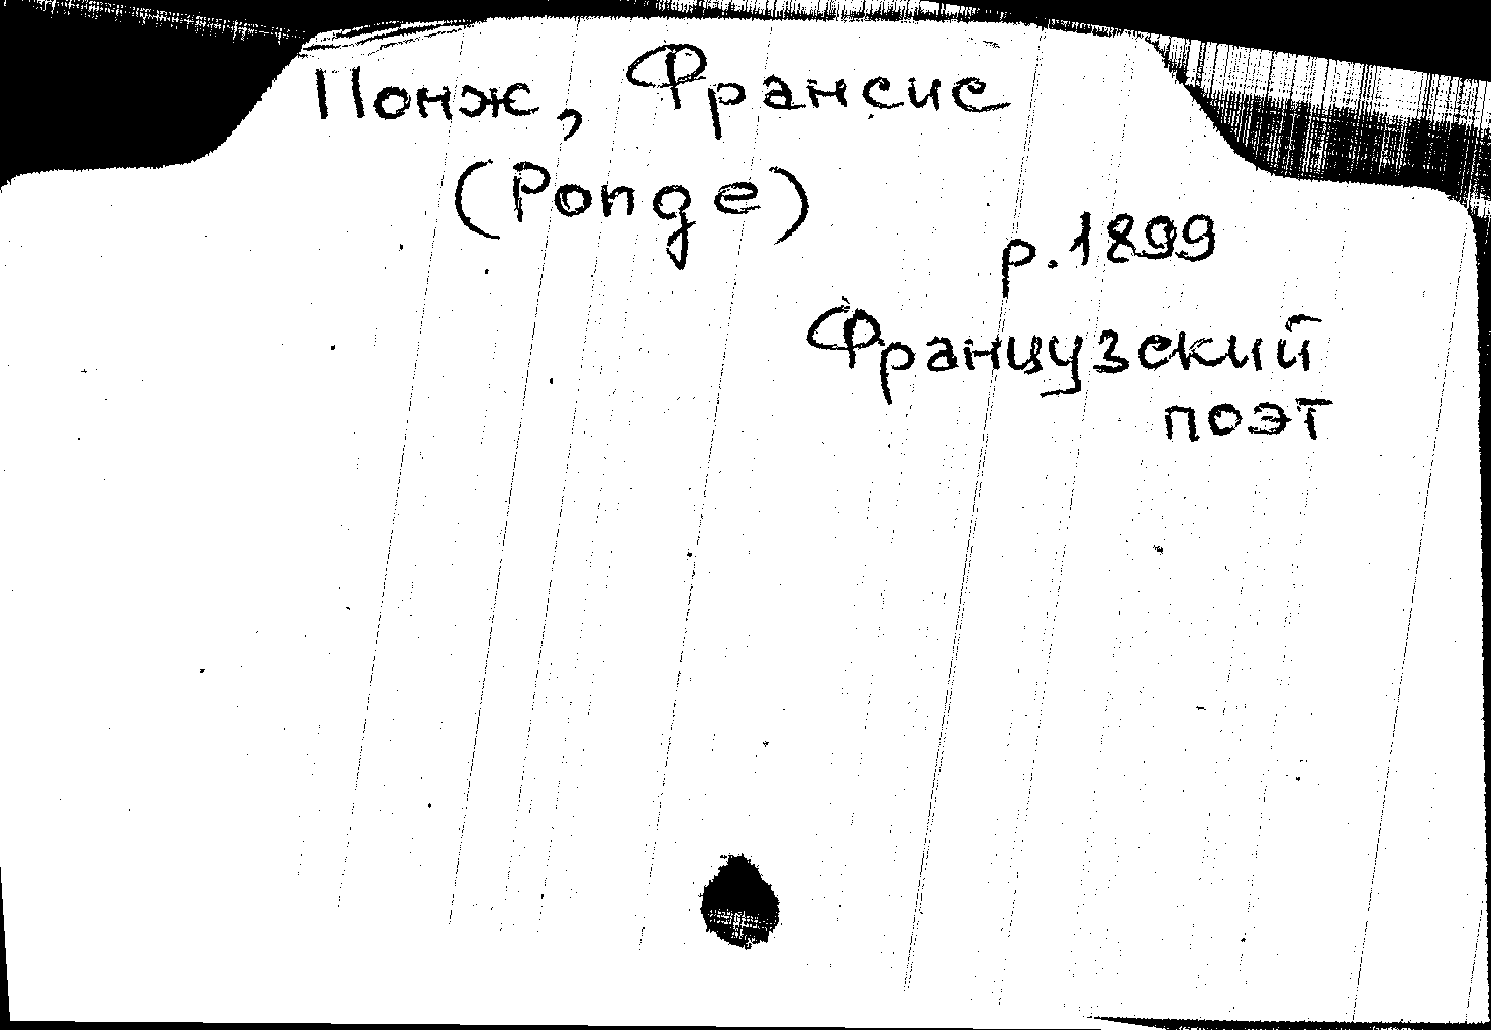 Понж, Франсис
(Ponge)
р. 1899
Французский
поэт